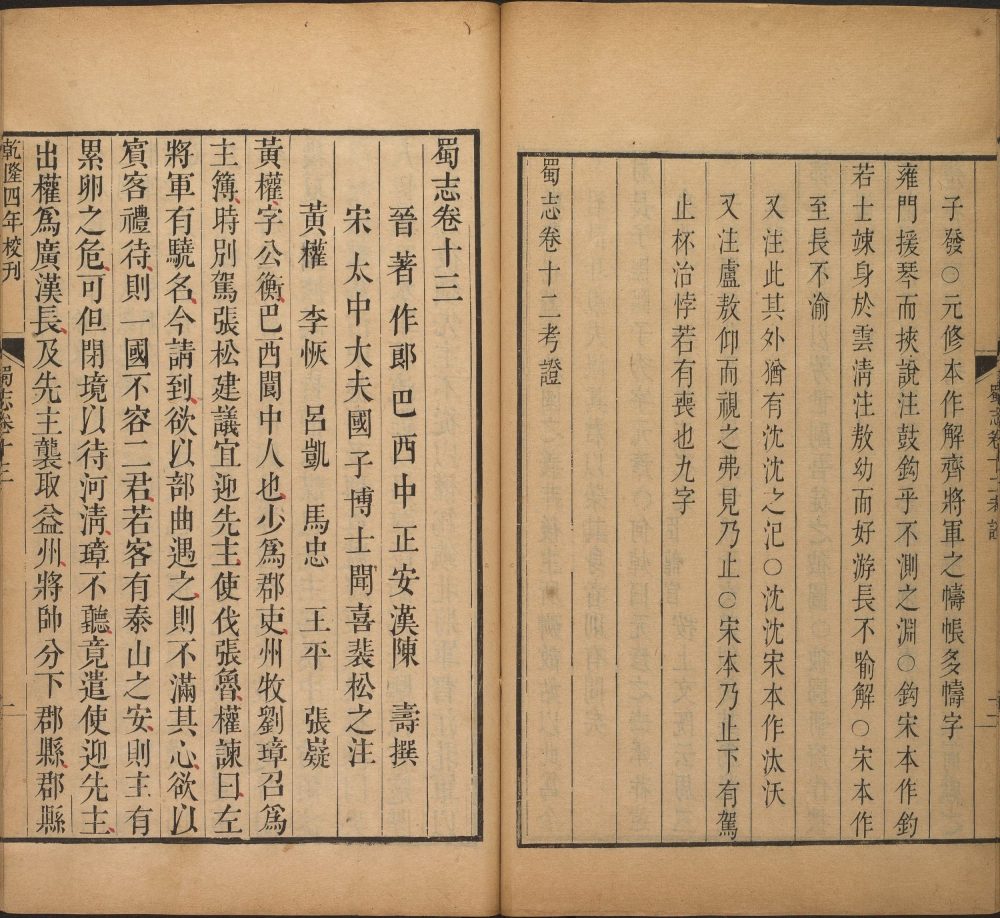 子發○元修本作解齊將軍之幬帳多幬字
雍門援琴而挾說注鼓鈎乎不測之淵○鈎宋本作釣
若士竦身於雲淸注敖幼而好游長不喻解○宋本作
至長不渝
又注此其外猶有沈沈之汜○沈沈宋本作汰沃
又注盧敖仰而視之弗見乃止○宋本乃止下有駕
止杯治悖若有喪也九字
蜀志卷十二考證
蜀志卷十三
晉著作郎巴西中正安漢陳壽撰
宋太中大夫國子博士聞喜裴松之注
黃權 李恢 呂凱 馬忠 王平 張嶷
黃權字公衡巴西閬中人也少爲郡吏州牧劉璋召爲
主簿時別駕張松建議宜迎先主使伐張魯權諫曰左
將軍有驍名今請到欲以部曲遇之則不滿其心欲以
賔客禮待則一國不容二君若客有泰山之安則主有
累卵之危可但閉境以待河淸璋不聽竟遣使迎先主
出權爲廣漢長及先主襲取益州將帥分下郡縣郡縣
乾隆四年校刊
蜀志卷十三
一